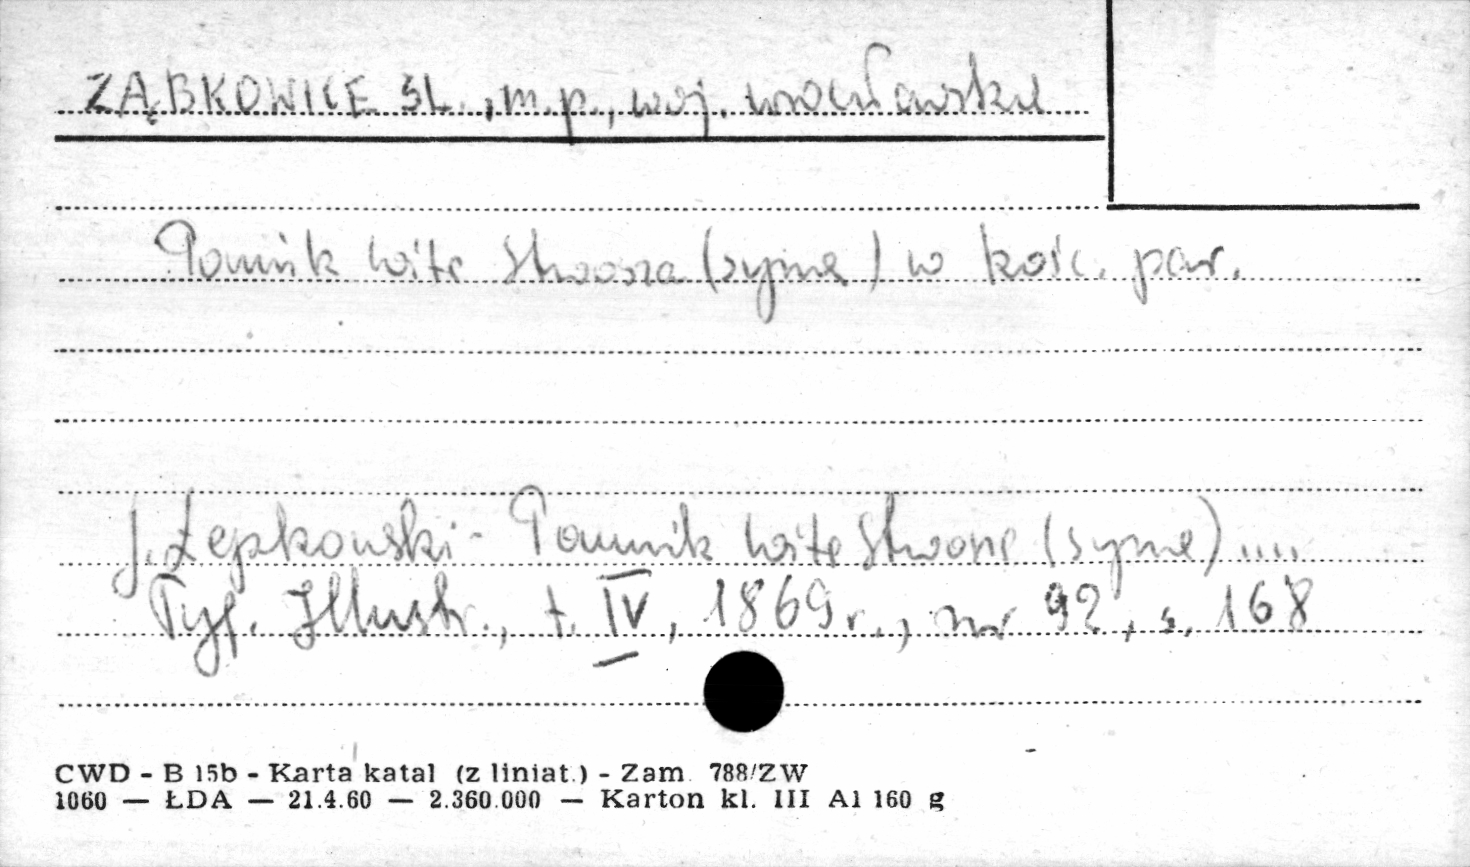 ZĄBKOWICE ŚL., m.p., woj. wrocławskie
Pomnik Wita Stwosza (syna) w kośc. par.
J. Łepkowski - Pomnik Wita Stwosza (syna) ....
Tyg. Illustr., t. IV, 1869 r., nr 92, s. 168
CWD - B 15b - Karta katal (z liniat.) - Zam 788/ZW
1060 — ŁDA — 21.4.60 — 2.360.000 — Karton kl. III A1 160 g